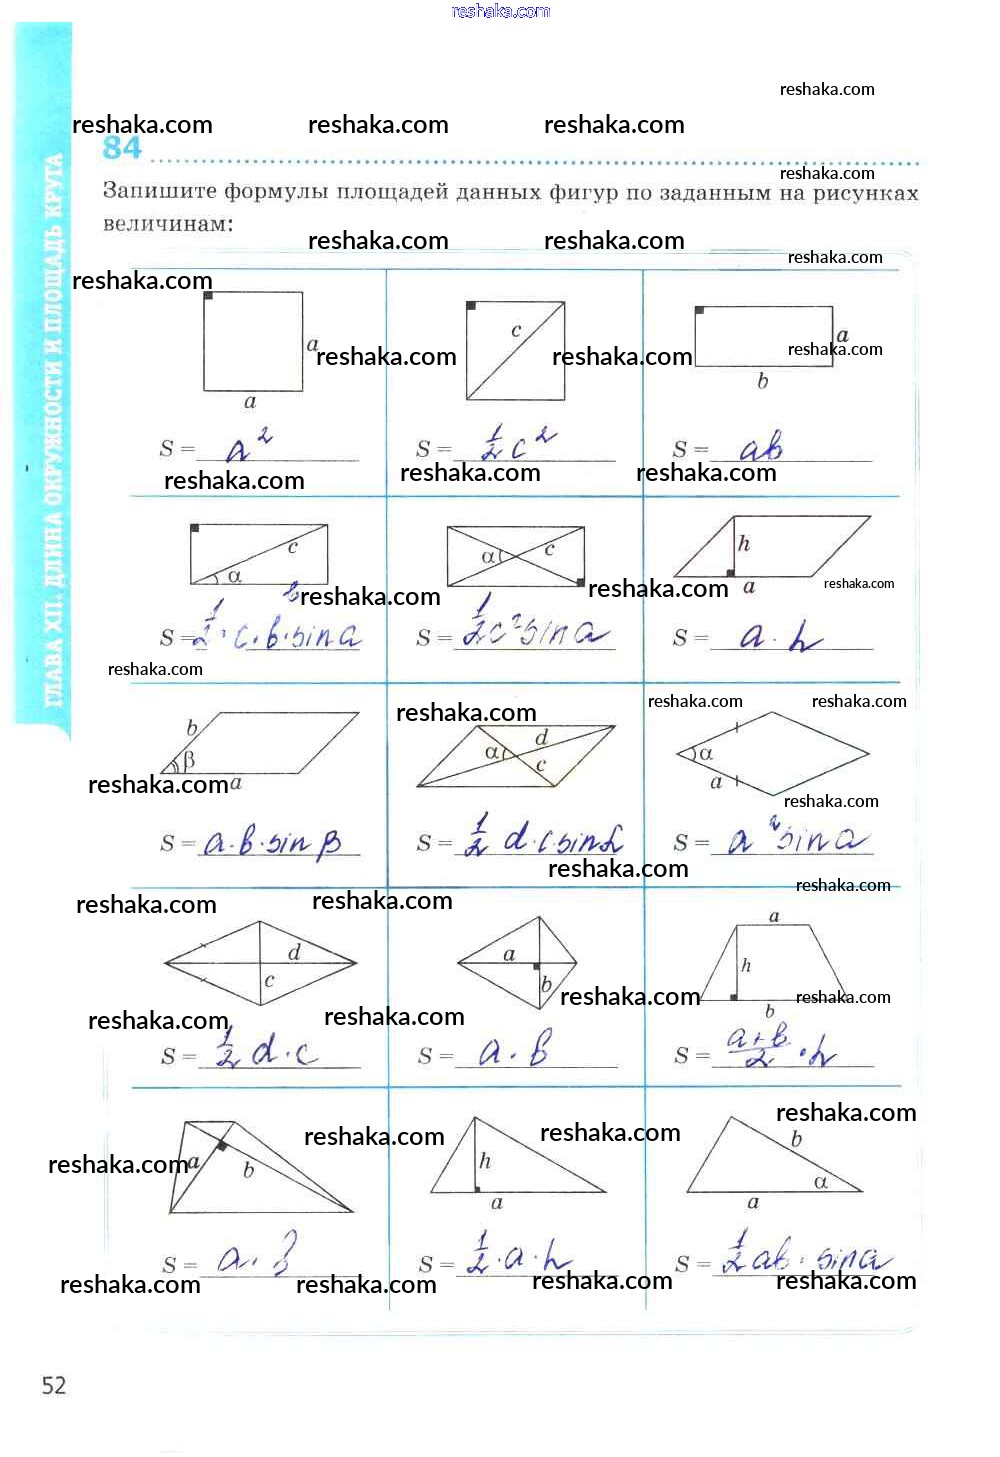 reshaka.com
reshaka.com
reshaka.com reshaka.com reshaka.com
84
reshaka.com
Запишите формулы площадей данных фигур по заданным на рисунках
величинам:
reshaka.com reshaka.com
reshaka.com
reshaka.com
ГЛАВА XII. ДЛИНА ОКРУЖНОСТИ И ПЛОЩАДЬ КРУГА
a c a
reshaka.com reshaka.com reshaka.com
a b
S = a² S = ½ c² S = ab
reshaka.com reshaka.com reshaka.com
c α α c h
reshaka.com reshaka.com a reshaka.com
b
S = ½ · c · b · sin a S = ½ c² sin a S = a · h
reshaka.com
reshaka.com reshaka.com reshaka.com
b β α d c α a
reshaka.com a
reshaka.com
S = a · b · sin β S = ½ d · c · sin α S = a² sin a
reshaka.com
reshaka.com
reshaka.com reshaka.com
d c a b a h
reshaka.com reshaka.com
b
reshaka.com reshaka.com
S = ½ d · c S = a · b S = a+b/2 · h
reshaka.com
reshaka.com reshaka.com
reshaka.com
a b h a b α a
S = a · S = ½ · a · h S = ½ ab · sin a
reshaka.com reshaka.com reshaka.com reshaka.com
52